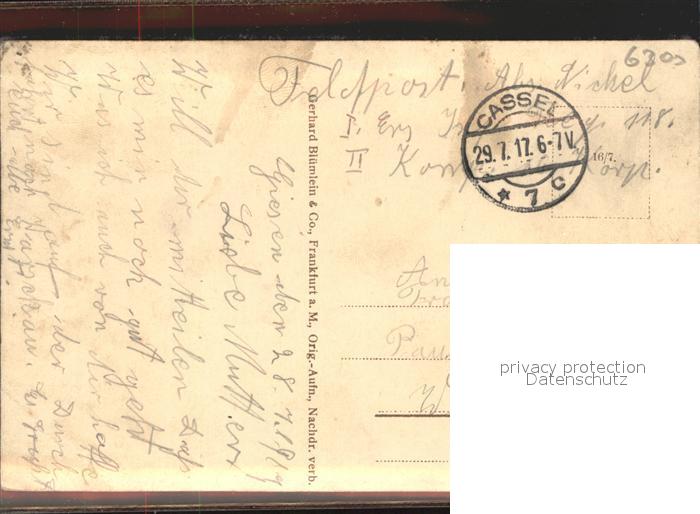 6303
Feldpost. Abs. Nickel
I. Ers 118.
II Korp.
CASSEL
29.7.17.6-7V.
* 7 C
16/7.
Gerhard Blümlein & Co., Frankfurt a. M., Orig.-Aufn., Nachdr. verb.
Giesen den 28.7.1919
Liebe Mutter
Will dir mitteilen daß
es mir noch gut geht
was ich auch von dir hoffe
Wir sind auf der Durch
nach Es grüßt
Euch alle
An
Pau
W
privacy protection
Datenschutz